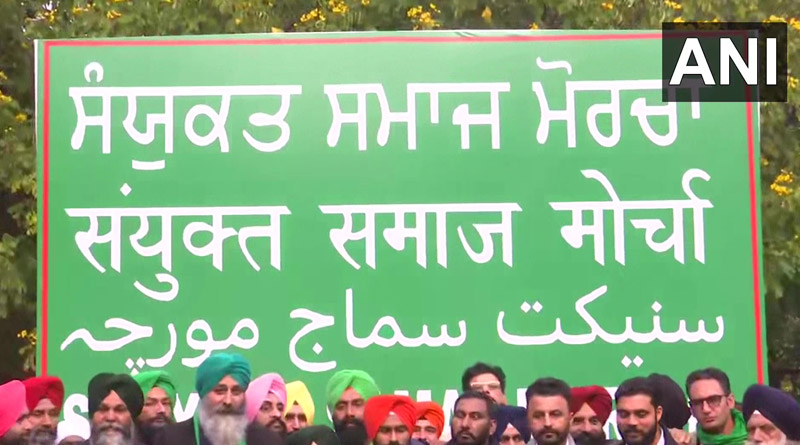 ANI
ਸੰਯੁਕਤ ਸਮਾਜ ਮੋਰਚਾ
संयुक्त समाज मोर्चा
سنیکت سماج مورچہ